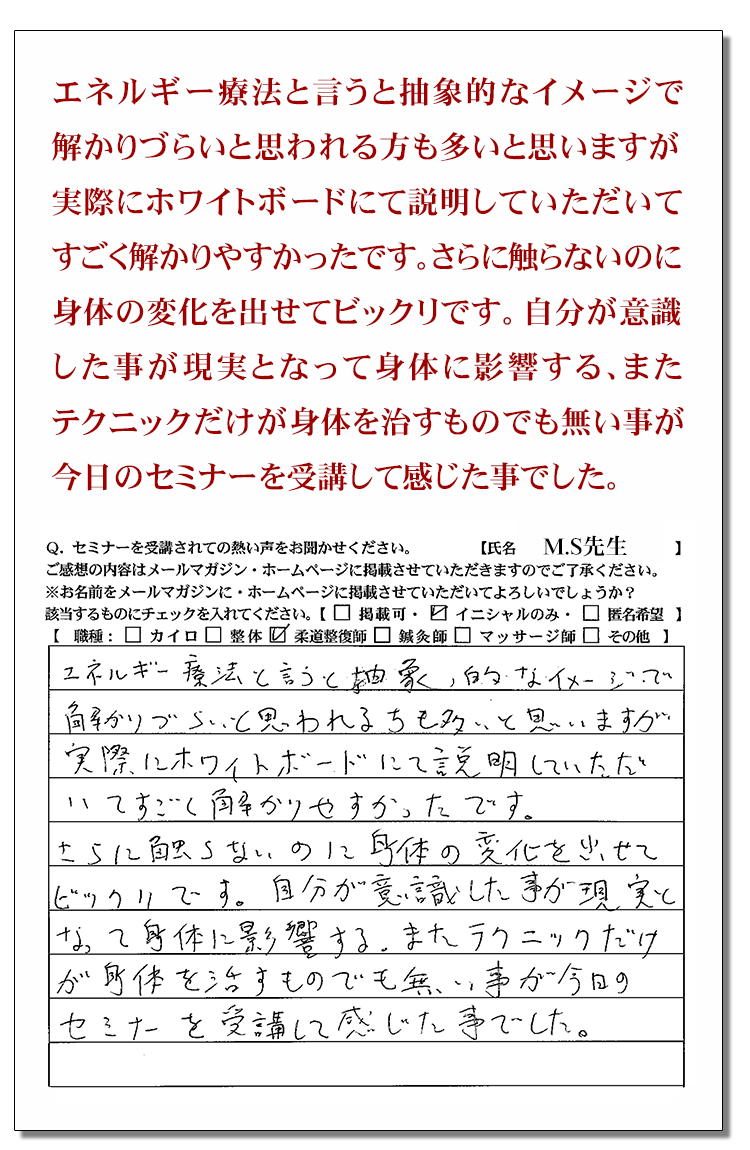 エネルギー療法と言うと抽象的なイメージで
解かりづらいと思われる方も多いと思いますが
実際にホワイトボードにて説明していただいて
すごく解かりやすかったです。さらに触らないのに
身体の変化を出せてビックリです。自分が意識
した事が現実となって身体に影響する、また
テクニックだけが身体を治すものでも無い事が
今日のセミナーを受講して感じた事でした。
Q. セミナーを受講されての熱い声をお聞かせください。 【氏名 M.S先生 】
ご感想の内容はメールマガジン・ホームページに掲載させていただきますのでご了承ください。
※お名前をメールマガジンに・ホームページに掲載させていただいてよろしいでしょうか？
該当するものにチェックを入れてください。【 □ 掲載可・ ☑ イニシャルのみ・ □ 匿名希望 】
【 職種： □ カイロ □ 整体 ☑ 柔道整復師 □ 鍼灸師 □ マッサージ師 □ その他 】
エネルギー療法と言うと抽象的なイメージで
解かりづらいと思われる方も多いと思いますが
実際にホワイトボードにて説明していただ
いてすごく解かりやすかったです。
さらに触らないのに身体の変化を出せて
ビックリです。自分が意識した事が現実と
なって身体に影響する、またテクニックだけ
が身体を治すものでも無い事が今日の
セミナーを受講して感じた事でした。